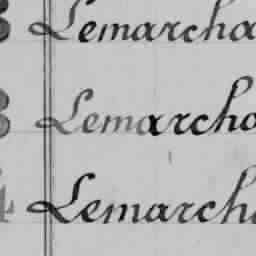 3 Lemarcha
3 Lemarcho
4 Lemarch